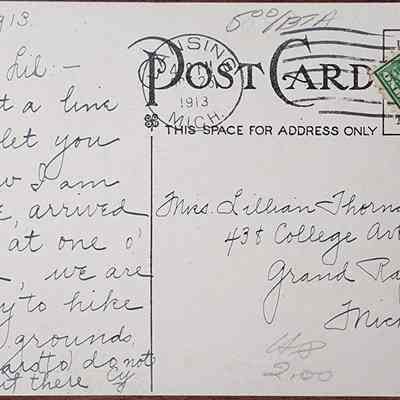 913
Lil –
t a line
let you
w I am
e, arrived
at one o'
, we are
y to hike
grounds.
to do note
it there Cy
5.00/BTA
LANSING
1913
MICH.
POST CARD
THIS SPACE FOR ADDRESS ONLY
Mrs. Lillian Thorn
438 College Av
Grand Ra
Mich
2.00